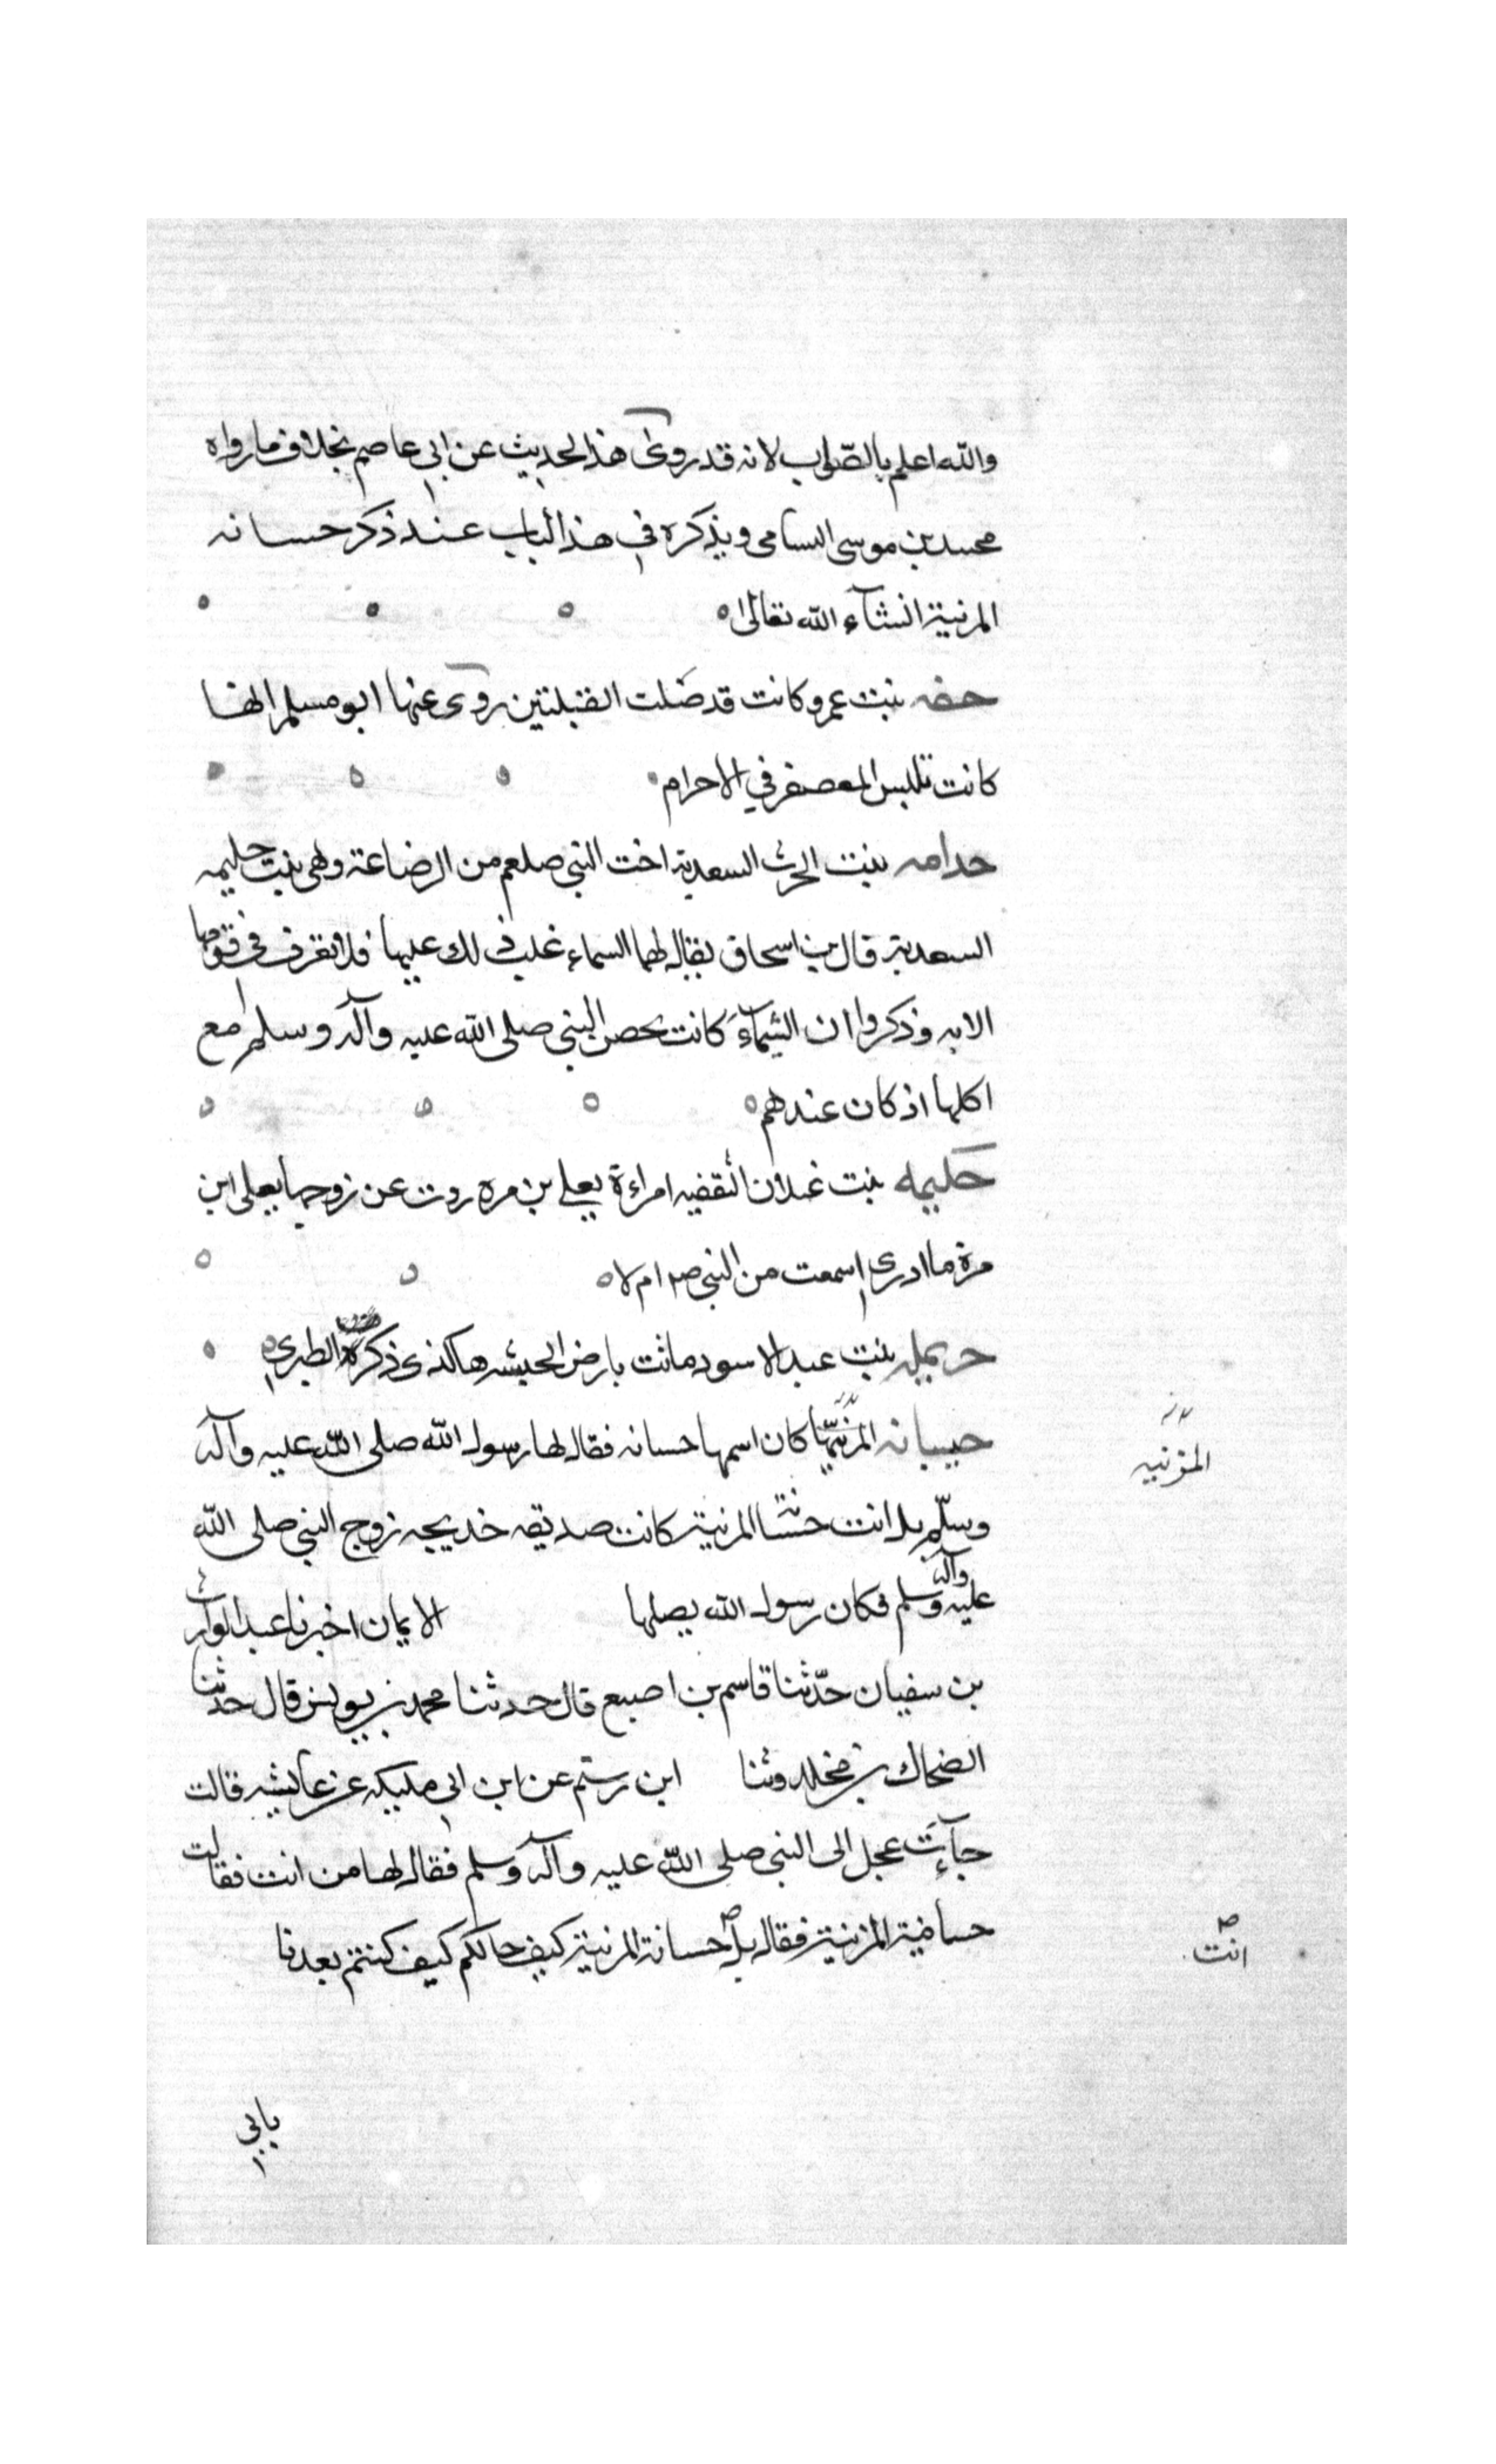 والله اعلم بالصّواب لانه قد روى هذا الحديث عن ابي عاصم بخلاف ما رواه
محمد بن موسى السامى ويذكره في هذا الباب عند ذكر حسانه
المزنية انشآء الله تعالى ه
حفه بنت عمرو كانت قد صَلت القبلتين روى عنها ابو مسلم انها
كانت تلبس المعصفر في الاحرام
حدامه بنت الحرث السعدية اخت النبي صلعم من الرضاعة وهى بنت حليمه
السعدية قال بن اسحاق يقال لها السماء غلب ذلك عليها فلا تعرف في قومها
الا به وذكروا ان الشيمآء كانت تحصن النبي صلى الله عليه وآله وسلم مع
اكلها اذ كان عندهم ه
حليمه بنت غيلان الثقفيه امراءة يعلي بن مره روت عن زوجها يعلى ابن
مرة ما ادرى اسمعت من النبي صم ام لا ه
حريمله بنت عبد الاسود ماتت بارض الحبشه هاكذى ذكره الطبري
حسانه المزنيه كان اسمها حسانه فقال لها رسول الله صلى الله عليه وآله
المزنيه
وسلّم بل انت حنتسا المزنية كانت صديقه خديجه زوج النبي صلى الله
عليه وآله وسلم فكان رسول الله يصلها الايمان اخبرنا عبد الوارث
بن سفيان حدّثنا قاسم بن اصبع قال حدثنا محمد بن يونس قال حدثنا
الضحاك بن مخلد وثنا ابن رستم عن ابن ابي مليكه عن عايشه قالت
جآءت عجل الى النبي صلى الله عليه وآله وسلم فقال لها من انت فقالت
حسانية المزنية فقال بل حسانة المزنية كيف حالكم كيف كنتم بعدنا
انت
بابي